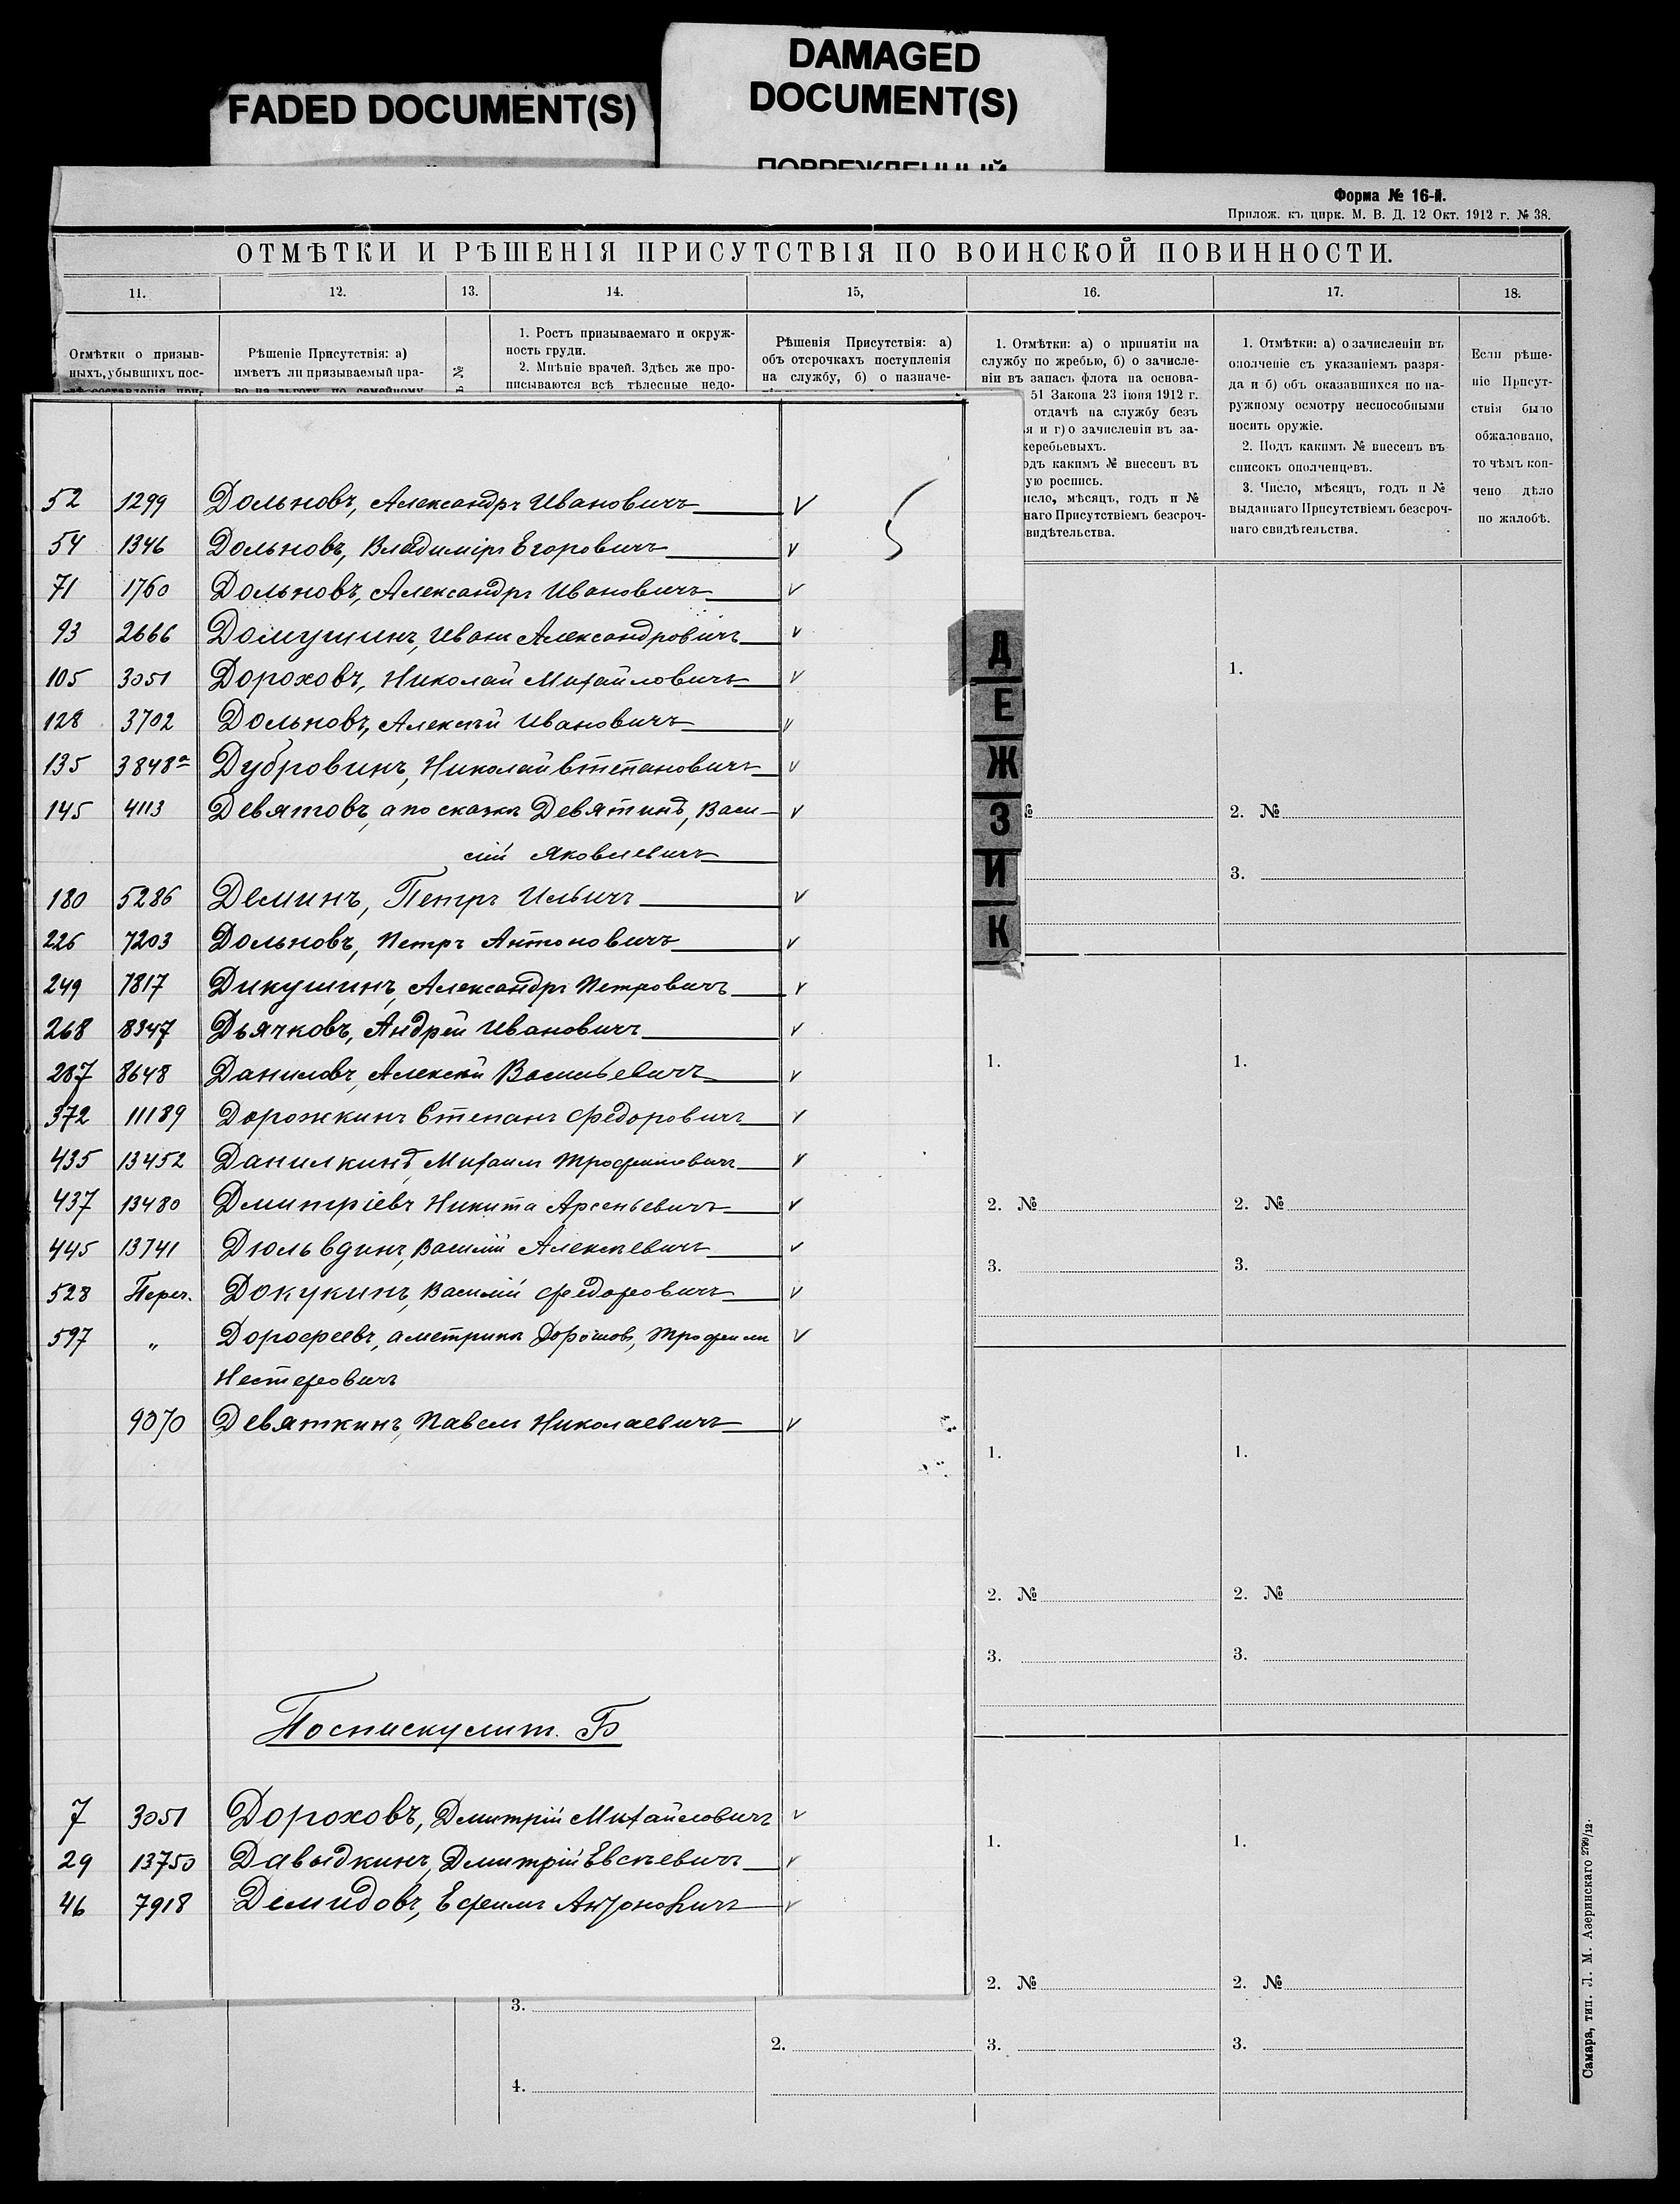 DAMAGED
DOCUMENT(S)
FADED DOCUMENT(S)
ПОВРЕЖДЕННЫЙ
Форма № 16-й.
Прилож. къ цирк. М. В. Д. 12 Окт. 1912 г. № 38.
ОТМѢТКИ И РѢШЕНІЯ ПРИСУТСТВІЯ ПО ВОИНСКОЙ ПОВИННОСТИ.
11. 12. 13. 14. 15, 16. 17. 18.
Отмѣтки о призыв-
ныхъ, убывшихъ пос-
Рѣшеніе Присутствія: а)
имѣетъ ли призываемый пра-
во на льготу по семейному
№
1. Ростъ призываемаго и окруж-
ность груди.
2. Мнѣніе врачей. Здѣсь же про-
писываются всѣ тѣлесные недо-
Рѣшенія Присутствія: а)
объ отсрочкахъ поступленія
на службу, б) о назначе-
1. Отмѣтки: а) о принятіи на
службу по жребью, б) о зачисле-
ніи въ запасъ флота на основа-
51 Закона 23 іюня 1912 г.
отдачѣ на службу безъ
я и г) о зачисленіи въ за-
жеребьевыхъ.
одъ какимъ № внесенъ въ
ую роспись.
исло, мѣсяцъ, годъ и №
наго Присутствіемъ безсроч-
видѣтельства.
1. Отмѣтки: а) о зачисленіи въ
ополченіе съ указаніемъ разря-
да и б) объ оказавшихся по на-
ружному осмотру неспособными
носить оружіе.
2. Подъ какимъ № внесенъ въ
списокъ ополченцевъ.
3. Число, мѣсяцъ, годъ и №
выданнаго Присутствіемъ безсроч-
наго свидѣтельства.
Если рѣше-
ніе Присут-
ствія было
обжаловано,
то чѣмъ кон-
чено дѣло
по жалобѣ.
52 1299 Дольновъ, Александръ Ивановичъ V
54 1346 Дольновъ, Владиміръ Егоровичъ V
71 1760 Дольновъ, Александръ Ивановичъ V
93 2666 Домушинъ, Иванъ Александровичъ V
105 3051 Дороховъ, Николай Михайловичъ V
128 3702 Дольновъ, Алексѣй Ивановичъ V
135 3848а Дубровинъ, Николай Степановичъ V
145 4113 Девятовъ, а по сказкѣ Девятинъ, Васи- V
лій Яковлевичъ
180 5286 Деминъ, Петръ Ильичъ V
226 7203 Дольновъ, Петръ Антоновичъ V
249 7817 Дикушинъ, Александръ Петровичъ V
268 8347 Дьячковъ, Андрей Ивановичъ V
287 8648 Даниловъ, Алексѣй Васильевичъ V
372 11189 Дорожкинъ Степанъ Федоровичъ V
435 13452 Данилкинъ, Михаилъ Трофимовичъ V
437 13480 Дмитріевъ Никита Арсеньевичъ V
445 13741 Дюльвдинъ, Василій Алексѣевичъ V
528 Переч. Докукинъ, Василій Федоровичъ V
597 „ Дорофеевъ, а метрикѣ Дорошовъ, Трофимъ V
Нестеровичъ
9070 Девяткинъ, Павелъ Николаевичъ V
По списку лит. Б
7 3051 Дороховъ, Дмитрій Михайловичъ V
29 13750 Давыдкинъ, Дмитрій Евсѣевичъ V
46 7918 Демидовъ, Ефимъ Антоновичъ V
Д
Е
Ж
З
И
К
1.
№ 2. №
3.
1. 1.
2. № 2. №
3. 3.
1. 1.
2. № 2. №
3. 3.
1. 1.
2. № 2. №
3.
2. 3. 3.
4.
Самара, тип. Л. М. Азеринскаго 2799/12.